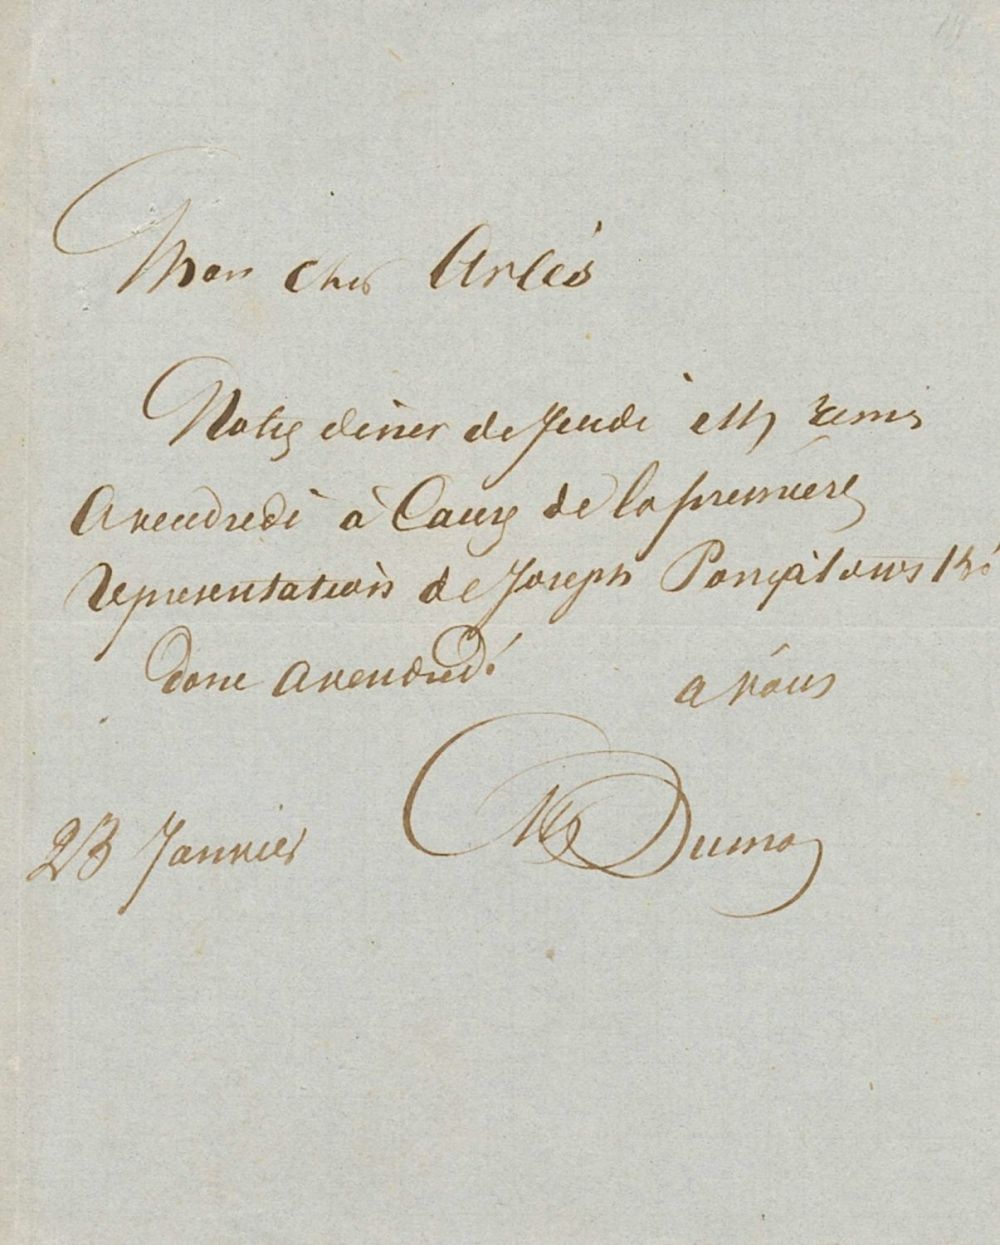 Mon cher Arlès
Notre diner de Jeudi est remis
a vendredi à Cause de la première
representation de Joseph Poniatowski
donc a vendredi
a vous
Alex Dumas
23 Janvier